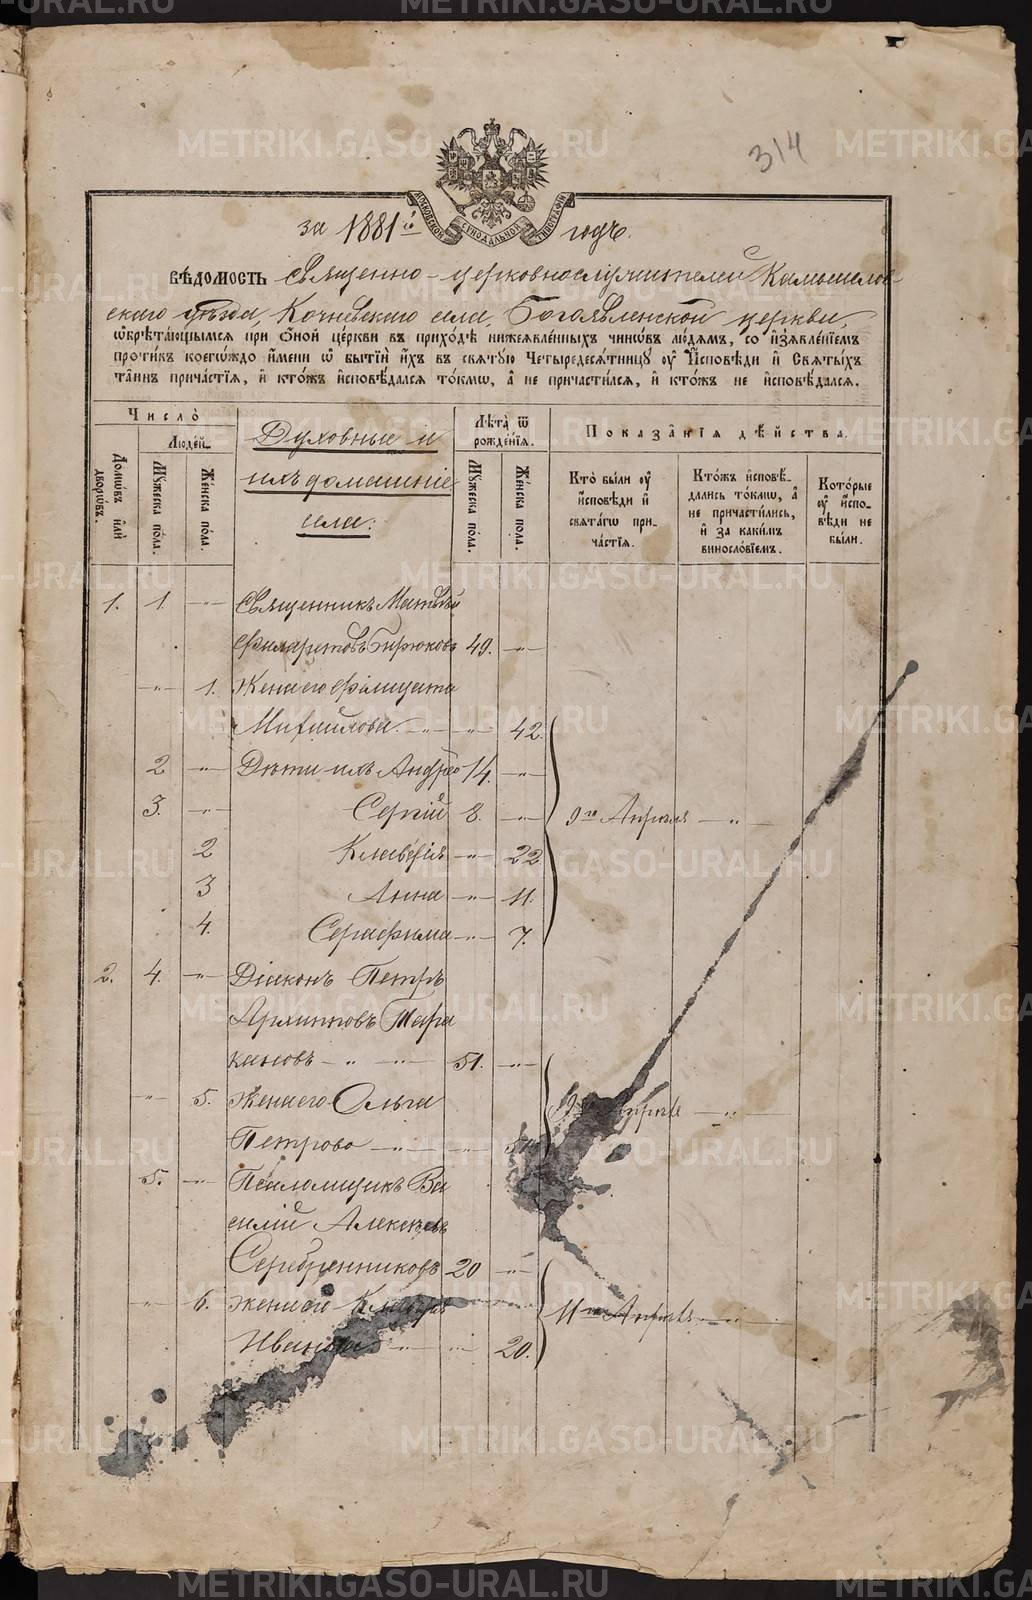 314
МОСКОВСКОЙ СУНОДАЛЬНОЙ ТИПОГРАФІИ
за 1881й годъ.
ВѢДОМОСТЬ священно-церковнослужителей Камышлов-
скаго уѣзда, Кочневскаго села, Богоявленской церкви,
ѡбрѣтающымся при ѻной церкви въ приходѣ нижеявленныхъ чинѡвъ людямъ, со изъявленіемъ
противъ коегѡждо имени ѡ бытіи ихъ въ святую Четыредесятницу оу Исповѣди и Святыхъ
таинъ причастія, и ктожъ исповѣдался токмѡ, а не причастился, и ктожъ не исповѣдался.
Число
Людей.
Домѡвъ или дворѡвъ.
Мужеска пола.
Женска пола.
Духовные и
ихъ домашніе
села:
Лѣта ѿ рожденія.
Мужеска пола.
Женска пола.
Показанія дѣйства.
Кто были оу исповѣди и святагѡ причастія.
Ктожъ исповѣдались токмѡ, а не причастились, и за какимъ винословіемъ.
Которые оу исповѣди не были.
1. 1. -"- Священникъ Матвѣй
Филаретовъ Бирюковъ 49. -"-
-"- 1. Жена его Фелицата
Михайлова -"- -"- 42.
2 -"- Дѣти ихъ Андрей 14. -"-
3. -"- Сергій 8. -"- 9го Апрѣля -"-
2 Клавдія -"- 22
3 Анна -"- 11.
4. Серафима -"- 7.
2. 4. -"- Діаконъ Петръ
Архиповъ Тара
кановъ -"- -"- 51. -"-
-"- 5. Жена его Ольга
Петрова -"- -"-
5. -"- Псаломщикъ Ва
силій Алексѣевъ
Серебренниковъ 20 -"-
-"- 6. Жена его 11го Апрѣля -"-
Иванова -"- -"- 20.
METRIKI.GASO-URAL.RU